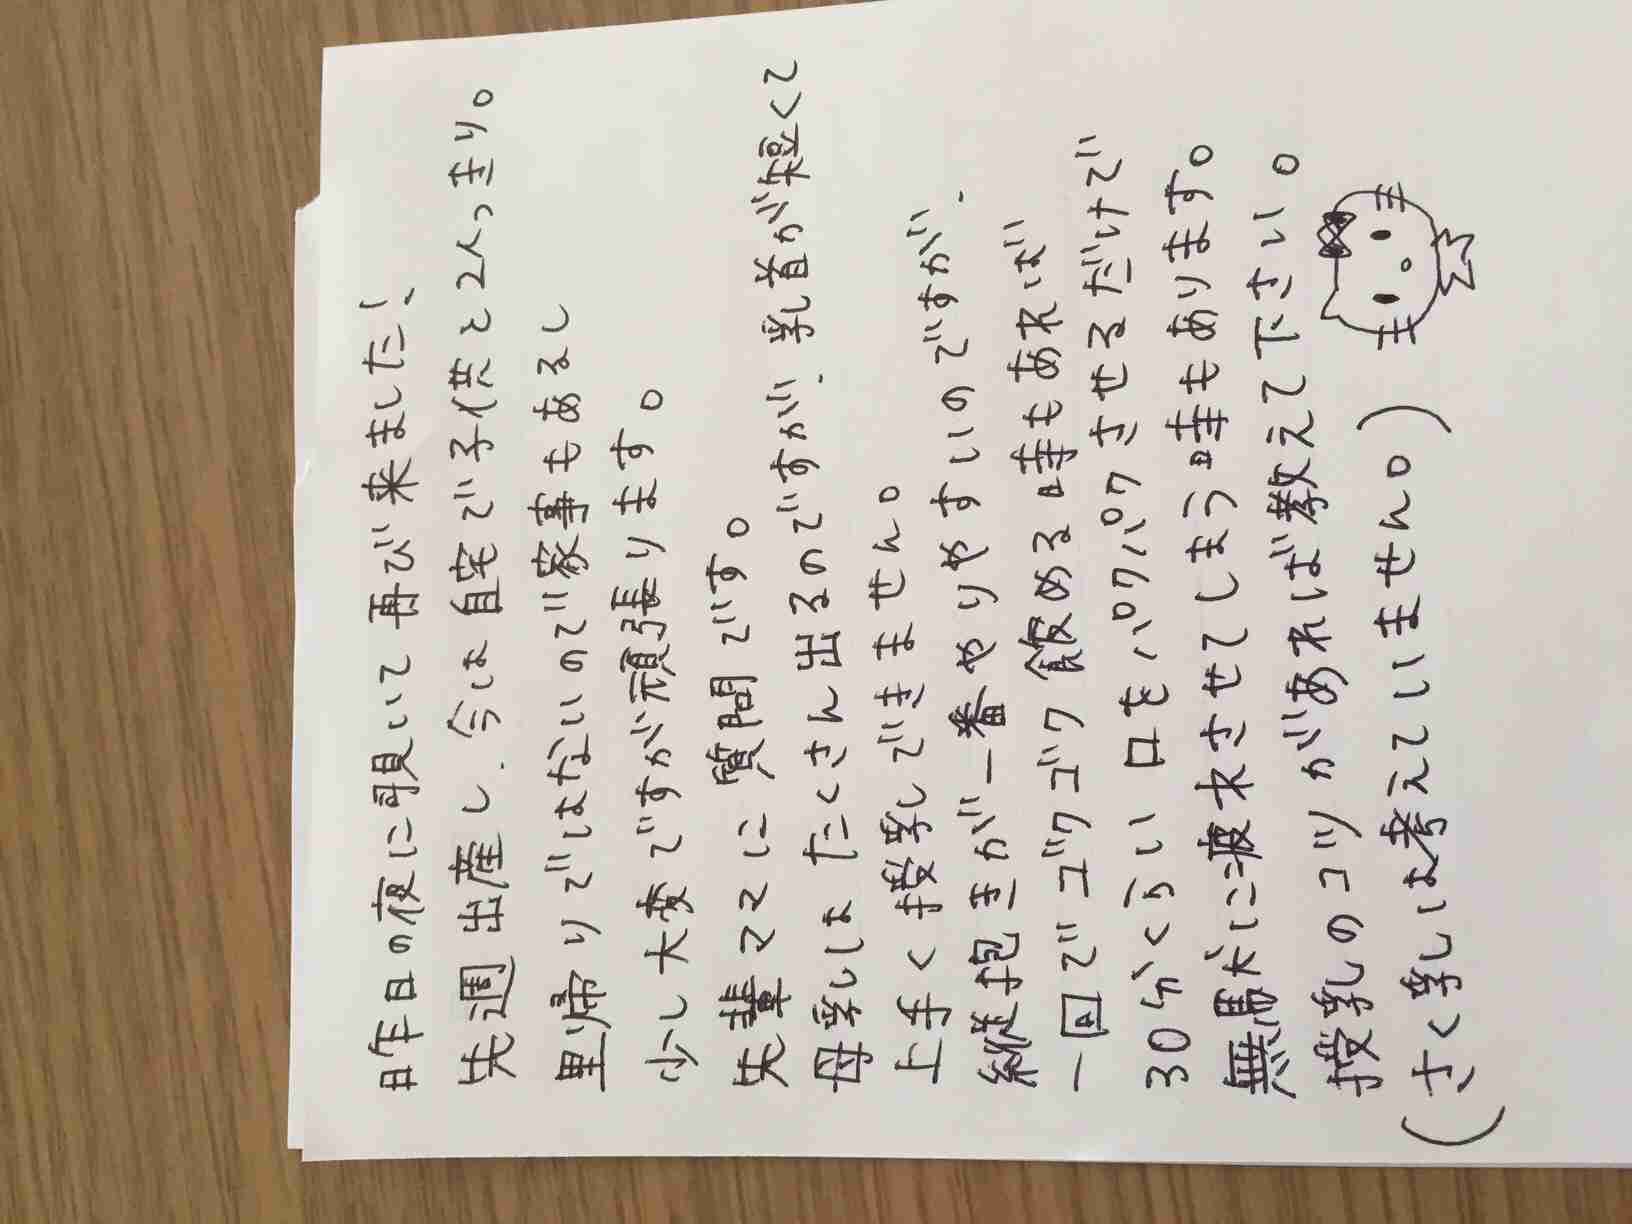 昨年日の夜に覗いて再び来ました!
先週出産し、今は自宅で子供と2人っきり。
里帰りではないので家事もあるし
少し大変ですが頑張ります。
先輩ママに質問です。
母乳はたくさん出るのですが、乳首が短くて
上手く授乳できません。
縦抱きが一番やりやすいのですが、
一回でゴクゴク飲める時もあれば
30分くらい口をパクパクさせるだけで
無駄に疲れさせてしまう時もあります。
授乳のコツがあれば教えて下さい。
(さく乳は考えていません。)